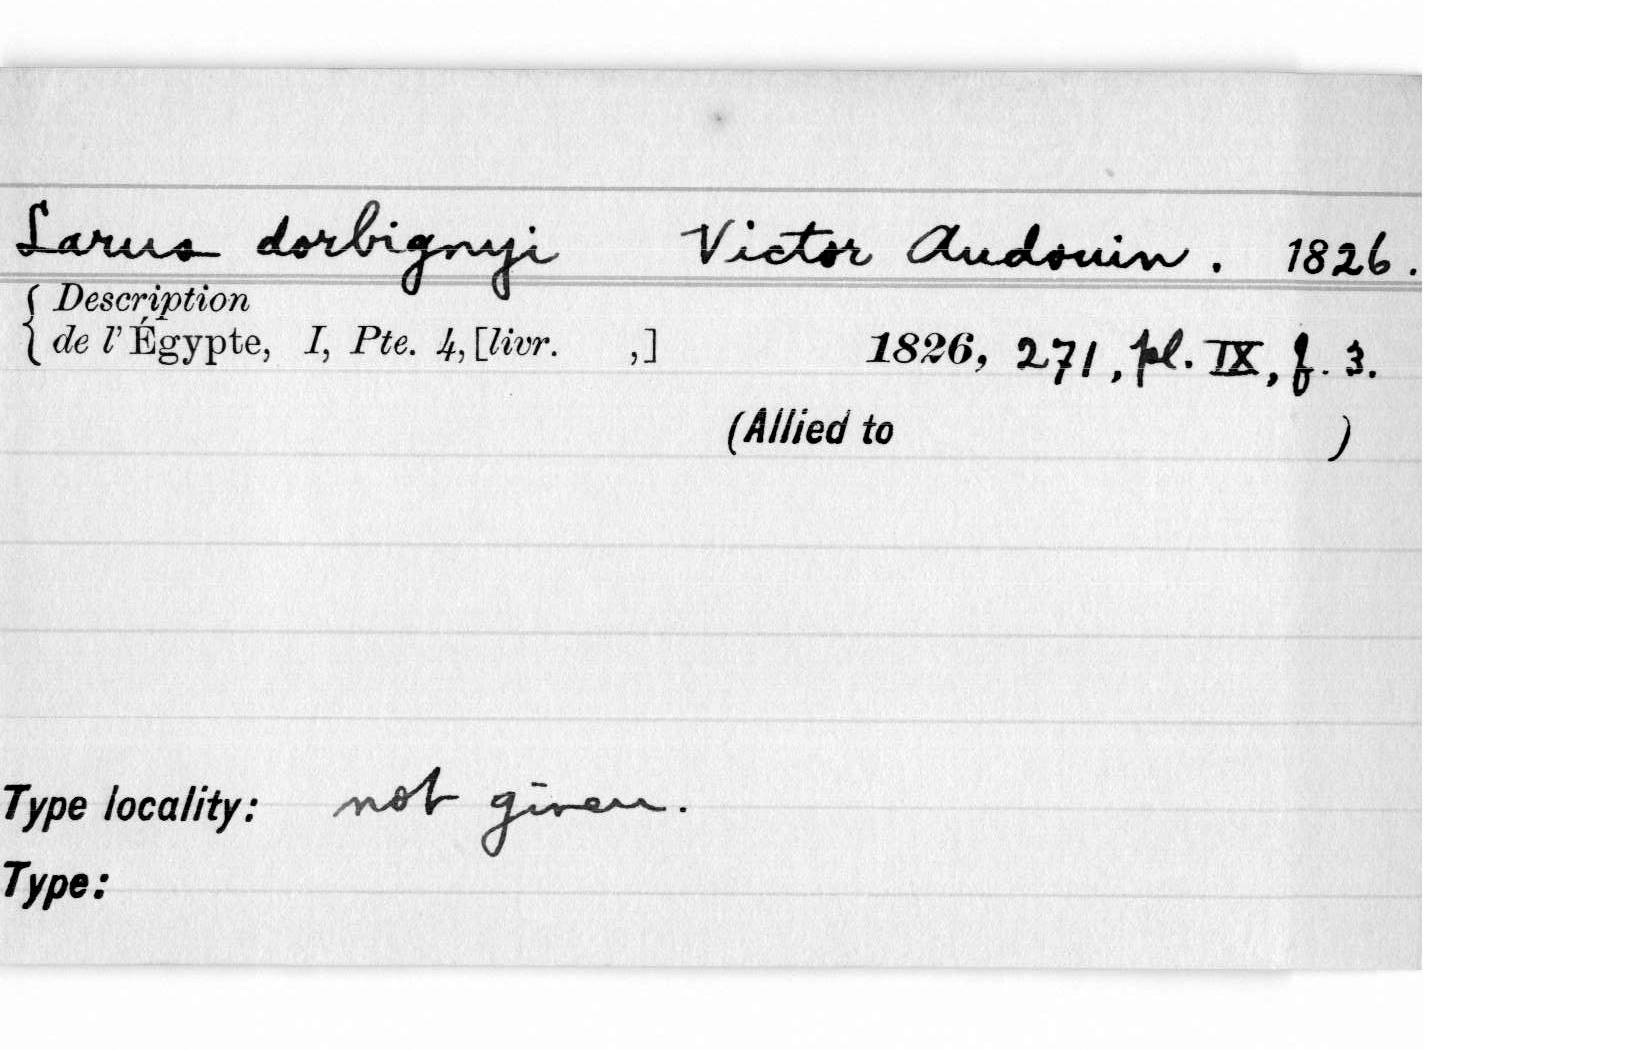 Larus dorbignyi Victor Audouin. 1826.
{ Description
de l'Égypte, I, Pte. 4, [livr. ,] 1826, 271, pl. IX, f. 3.
(Allied to )
Type locality: not given.
Type: